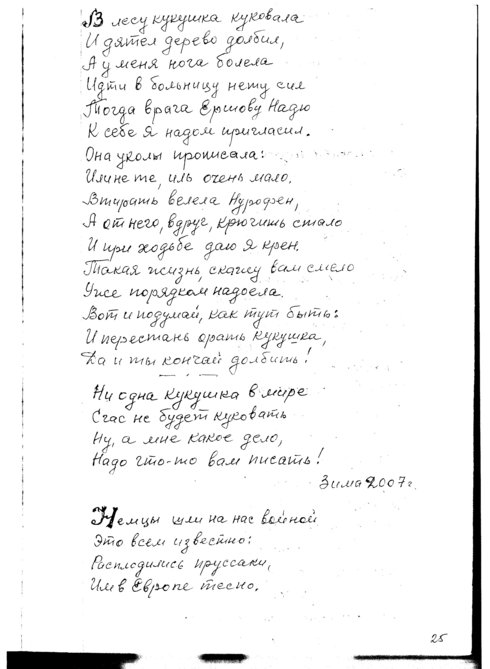 В лесу кукушка куковала
И дятел дерево долбил,
А у меня нога болела
Идти в больницу нету сил
Тогда врача Ершову Надю
К себе я надом пригласил.
Она уколы прописала:
Или не те, иль очень мало.
Втирать велела Нурофен,
А от него, вдруг, крючить стало
И при ходьбе даю я крен.
Такая жизнь, скажу вам смело
Уже порядком надоела.
Вот и подумай, как тут быть:
И перестань орать кукушка,
Да и ты кончай долбить!
Ни одна кукушка в мире
Счас не будет куковать
Ну, а мне какое дело,
Надо что-то вам писать!
Зима 2007г.
Немцы шли на нас войной
Это всем известно:
Расплодились пруссаки,
Им в Европе тесно.
25